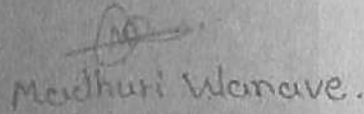 Madhuri Wanave.